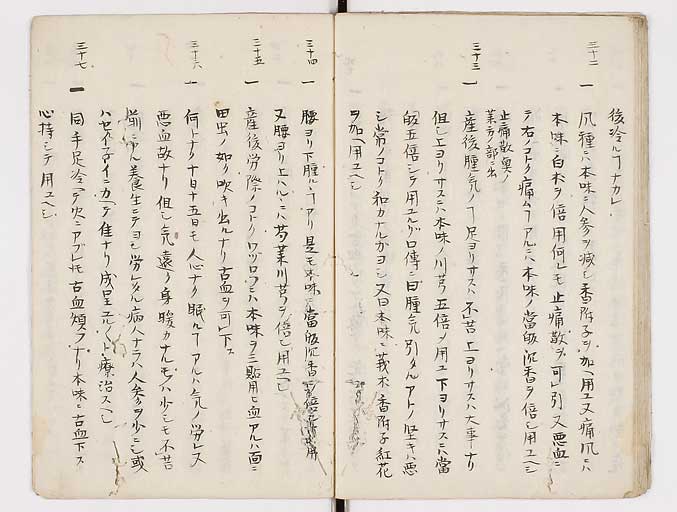 後冷ルヿナカレ
三十二
一 風種ニハ本味ニ人参ヲ減シ香附子ヲ加ヘ用ユ又痛風ニハ
本味ニ白朮ヲ倍用何レモ止痛散ヲ可引又悪血ニ
テ右ノコトク痛ムヿアルニハ本味ノ當皈沉香ヲ倍シ用ユヘシ
止痛散奥ノ
薬方ノ部ニ出
三十三
一 産後腫気ノヿ足ヨリサスハ不苦上ヨリサスハ大事ナリ
但シ上ヨリサスニハ本味ノ川芎五倍ノ用ユ下ヨリサスニハ當
皈五倍シテ用ユルゾロ傳ニ曰腫気引タルアトノ堅キハ悪
シ常ノコトク和カナルガヨシ又曰本味ニ莪朮香附子紅花
ヲ加ヘ用ユヘシ
三十四
一 腰ヨリ下腫ルヿアリ是モ本味ニ當皈沉香
又腰ヨリ上ハルヽニハ芎薬川芎ヲ倍シ用ユヘシ
三十五
一 産後労際ノコトクワヅロフニハ本味ヲ三貼用ヒ血アルハ面ニ
田虫ノ如ク吹キ出ルナリ古血ヲ可下ス
三十六
一 何トナク十日十五日モ人心ナク眠ルヿアルハ気ノ労レス
悪血故ナリ但シ気遠ク身暖カナルモノハ少シモ不苦
養生ニテヨシ労レタル病人ナラハ人参ヲ少ニシ或
佳ナリ成呈ユル〱ト療治スヘシ
三十七
一 同手足冷ヘテ火ニアブレモ古血煩フナリ本味ニ古血下ス
心持シテ用ユヘシ